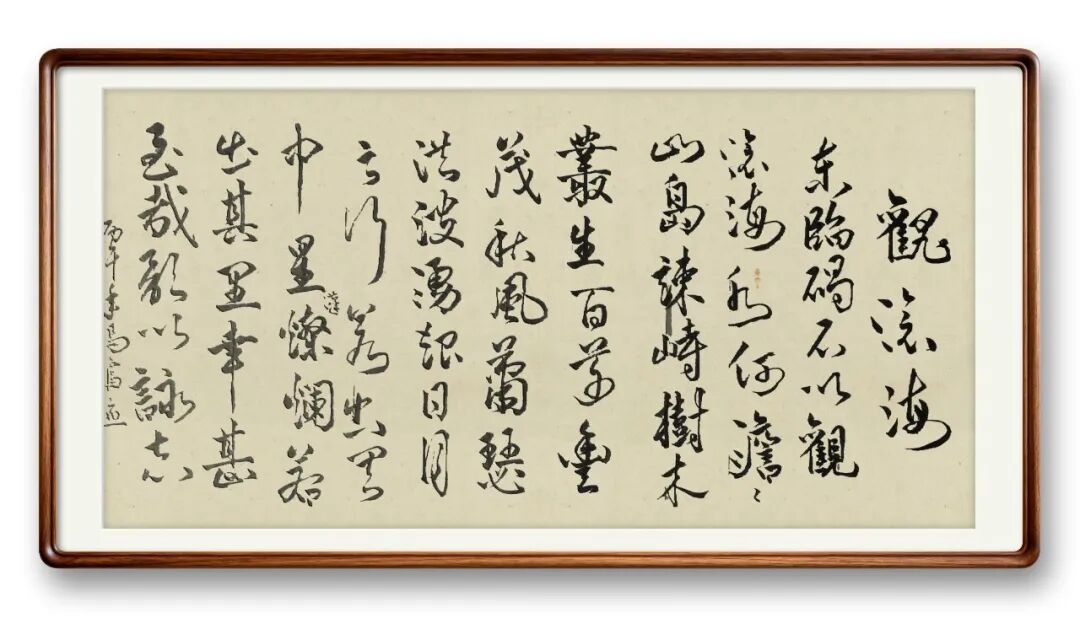 觀滄海
东臨碣石以觀
滄海水何澹〻
山島竦峙樹木
叢生百草豐
茂秋風蕭瑟
洪波湧起日月
之行若出其
中星漢燦爛若
出其里幸甚
至哉歌以詠志
丙午